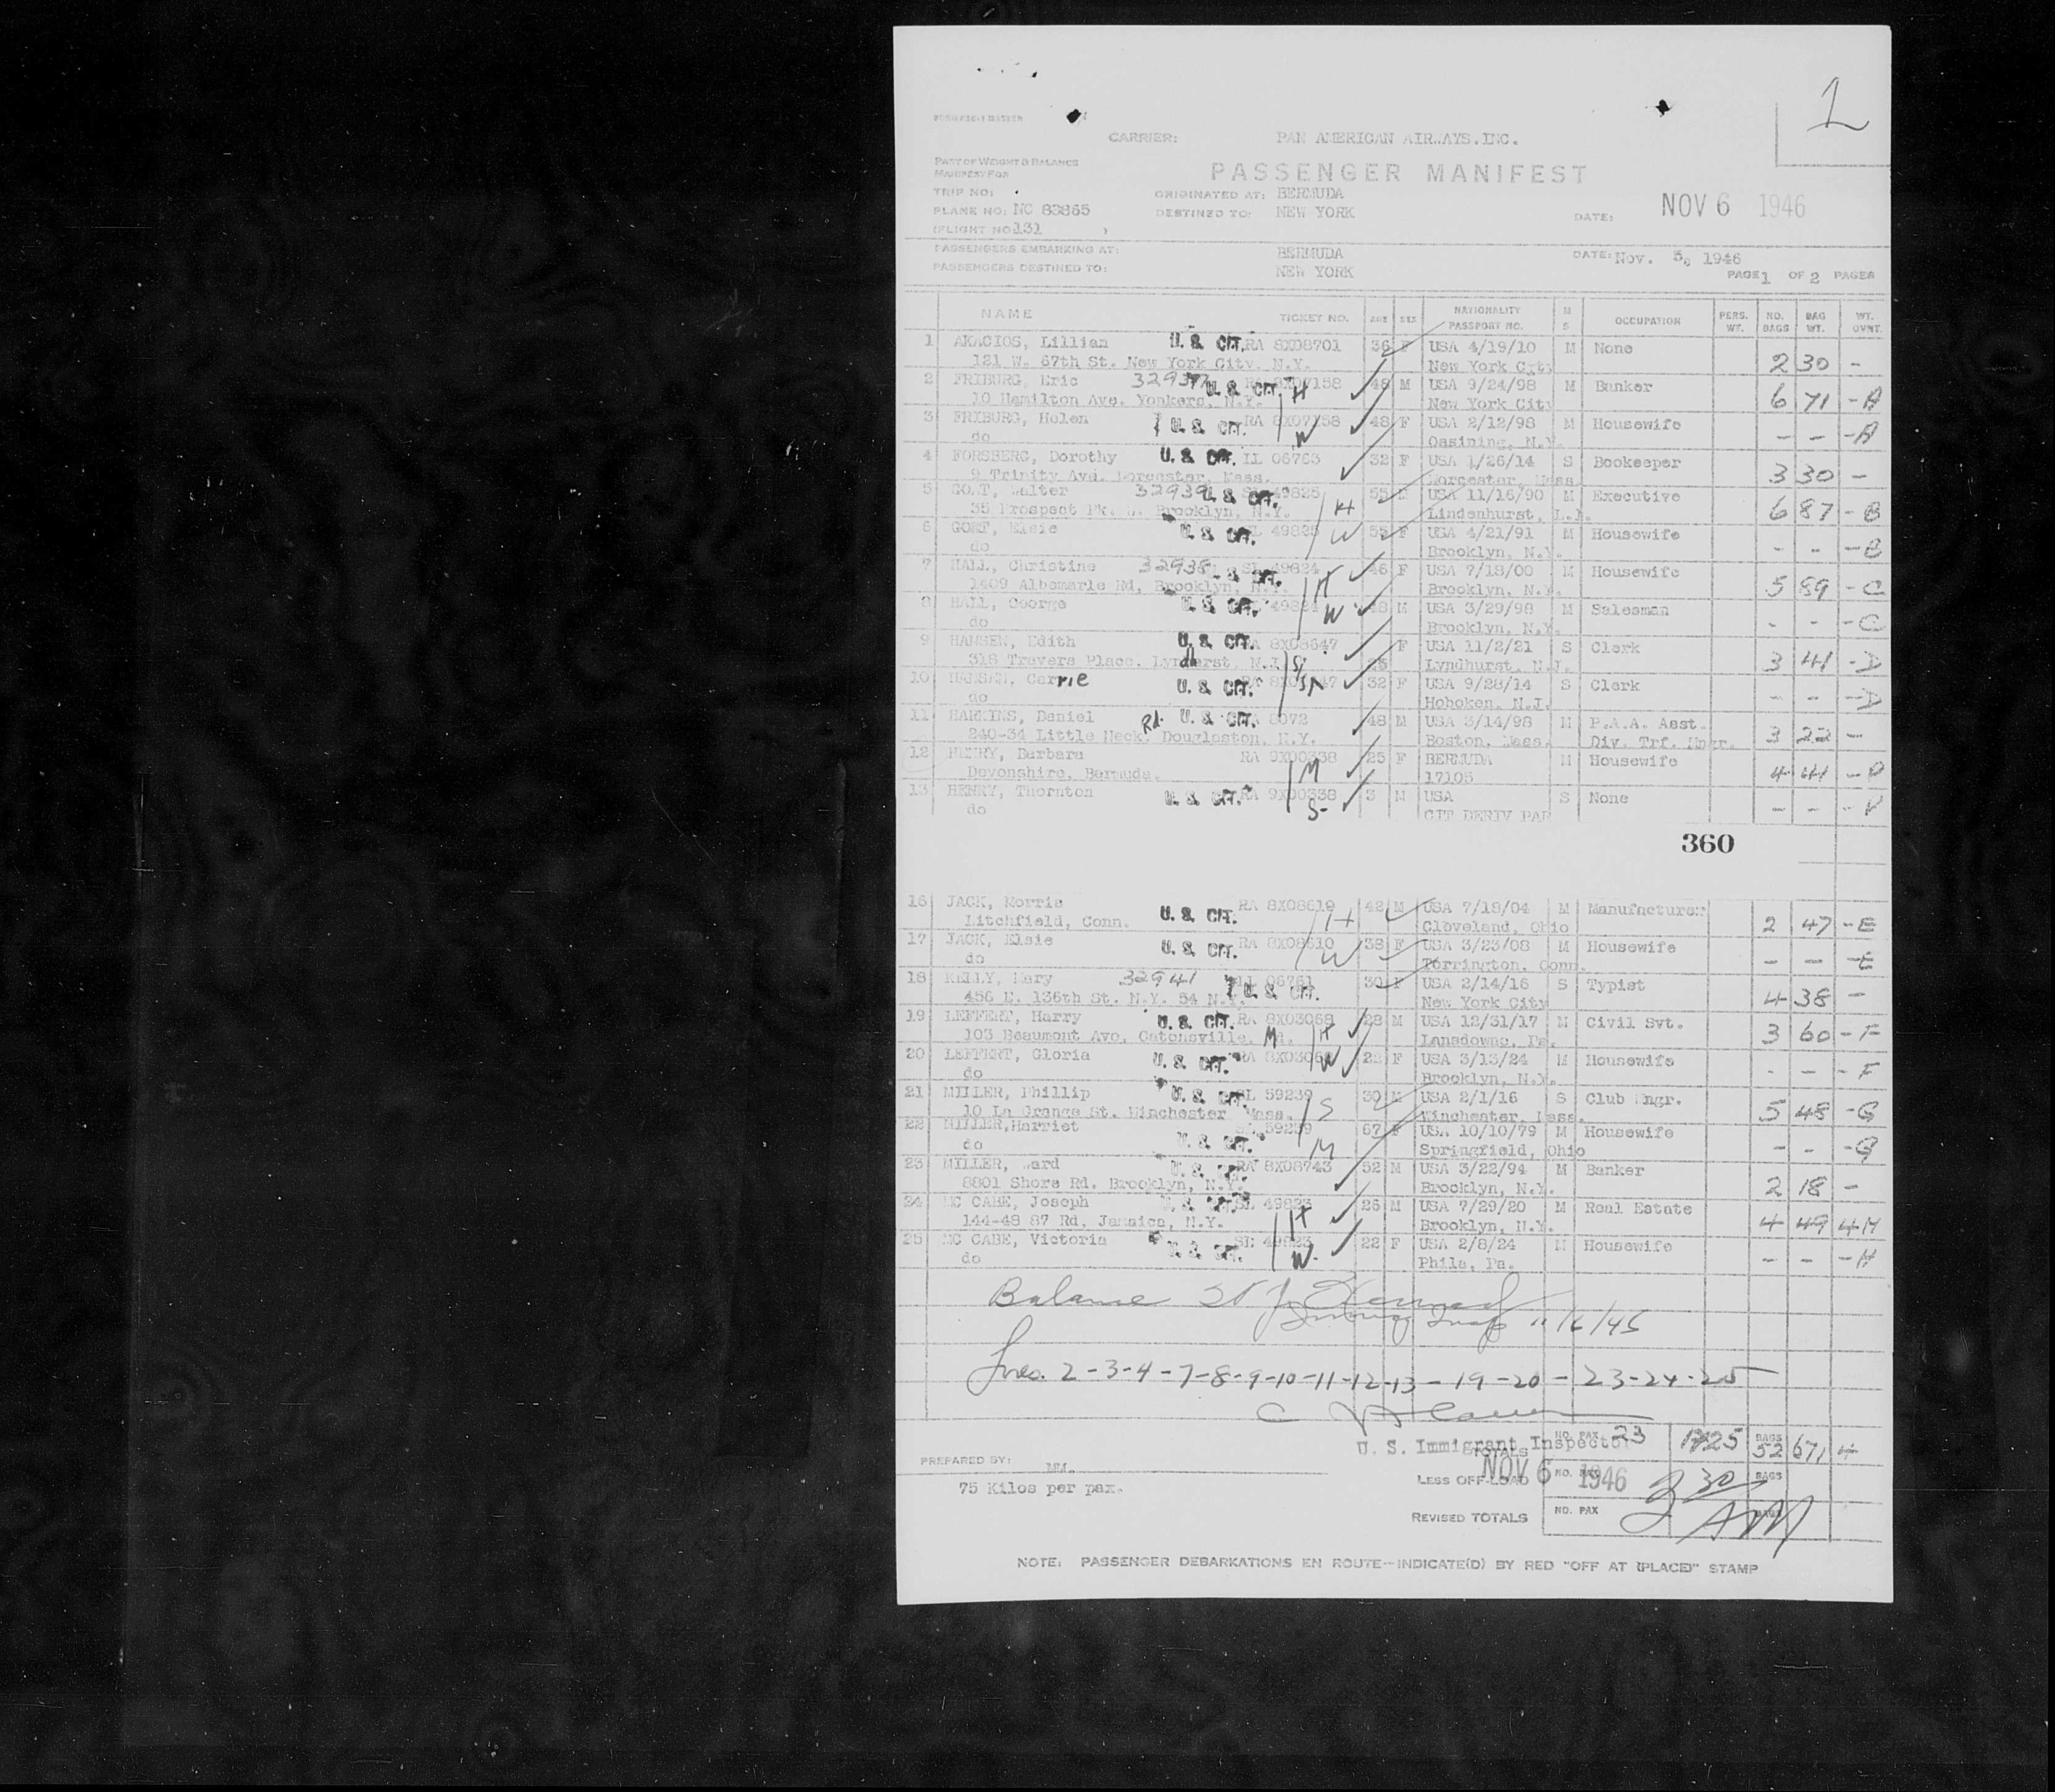 1
FORM 636-1 MASTER
CARRIER: PAN AMERICAN AIRWAYS.INC.
PART OF WEIGHT & BALANCE
MANIFEST FOR
PASSENGER MANIFEST
TRIP NO: ORIGINATED AT: BERMUDA
PLANE NO: NC 83865 DESTINED TO: NEW YORK DATE: NOV 6 1946
(FLIGHT NO 131 )
PASSENGERS EMBARKING AT: BERMUDA DATE: Nov. 5, 1946
PASSENGERS DESTINED TO: NEW YORK PAGE 1 OF 2 PAGES
NAME TICKET NO. AGE SEX NATIONALITY PASSPORT NO. M S OCCUPATION PERS. WT. NO. BAGS BAG WT. WT. OVWT.
1 AKACIOS, Lillian U. S. CIT. RA 8X08701 36 F USA 4/19/10 M None
121 W. 67th St. New York City, N.Y. New York City 2 30 -
2 FRIBURG, Eric 32937 U. S. CIT. H 48 M USA 9/24/98 M Banker
10 Hamilton Ave. Yonkers, N.Y. New York City 6 71 - A
3 FRIBURG, Helen U. S. CIT. RA 8X07158 W 48 F USA 2/12/98 M Housewife
do Ossining, N.Y. - - - A
4 FORSBERG, Dorothy U. S. CIT. IL 06763 32 F USA 1/26/14 S Bookeeper
9 Trinity Ave. Worcester, Mass. Worcester, Mass. 3 30 -
5 Walter 32939 U. S. CIT. SL 49825 H 55 M USA 11/16/90 M Executive
35 Prospect Pk. Brooklyn, N.Y. Lindenhurst, L.I. 6 87 - B
6 Elsie U. S. CIT. 49825 W 55 F USA 4/21/91 M Housewife
do Brooklyn, N.Y. - - - B
7 HALL, Christine 32938 S. CIT. SL 49824 H 46 F USA 7/18/00 M Housewife
1409 Albemarle Rd, Brooklyn, N.Y. Brooklyn, N.Y. 5 89 - C
8 HALL, George U. S. CIT. 49824 W 48 M USA 3/29/98 M Salesman
do Brooklyn, N.Y. - - - C
9 HANSEN, Edith U. S. CIT. 8X08647 F USA 11/2/21 S Clerk
318 Travers Place. Lyndhurst, N.J. Si 25 Lyndhurst, N.J. 3 41 - D
10 HANSEN, Carrie U. S. CIT. 32 F USA 9/28/14 S Clerk
do Hoboken, N.J. - - - D
11 HARKINS, Daniel U. S. CIT. 8072 48 M USA 3/14/98 M P.A.A. Asst.
240-34 Little Neck Rd. Douglaston, N.Y. Boston, Mass. Div. Trf. Mngr. 3 22 -
12 HENRY, Barbara RA 9X00338 M 25 F BERMUDA M Housewife
Devonshire, Bermuda. 17105 4 44 - P
13 HENRY, Thornton U. S. CIT. RA 9X00338 S 3 M USA S None
do CIT DERIV PAR - - - P
360
16 JACK, Morris U. S. CIT. RA 8X08610 H 42 M USA 7/18/04 M Manufacturer
Litchfield, Conn. Cleveland, Ohio 2 47 - E
17 JACK, Elsie U. S. CIT. RA 8X08610 W 38 F USA 3/23/08 M Housewife
do Torrington, Conn. - - - E
18 KELLY, Mary 32941 IL 06761 U. S. CIT. 30 F USA 2/14/16 S Typist
456 E. 136th St. N.Y. 54 N.Y. New York City 4 38 -
19 LEFFERT, Harry U. S. CIT. RA 8X03068 H 28 M USA 12/31/17 M Civil Svt.
103 Beaumont Ave, Catonsville, Md. Lansdowne, Pa. 3 60 - F
20 LEFFERT, Gloria U. S. CIT. RA W 22 F USA 3/13/24 M Housewife
do Brooklyn, N.Y. - - - F
21 MILLER, Phillip U. S. CIT. SL 59239 S 30 M USA 2/1/16 S Club Mngr.
10 La Grange St. Winchester Mass. Winchester, Mass. 5 48 - G
22 MILLER,Harriet U. S. CIT. 59239 M 67 F USA 10/10/79 M Housewife
do Springfield, Ohio - - - G
23 MILLER, Ward U. S. RA 8X08743 52 M USA 3/22/94 M Banker
8801 Shore Rd. Brooklyn, N.Y. Brooklyn, N.Y. 2 18 -
24 MC CABE, Joseph U. S. CIT. SL 49823 H 26 M USA 7/29/20 M Real Estate
144-48 87 Rd, Jamaica, N.Y. Brooklyn, N.Y. 4 49 4 H
25 MC CABE, Victoria U. S. CIT. SL 49823 W 22 F USA 2/8/24 M Housewife
do Phila, Pa. - - - H
Balance
Insp 11/6/45
Lines. 2-3-4-7-8-9-10-11-12-13-19-20-23-24-25
U. S. Immigrant Inspector
TOTALS NO. PAX 23 1725 BAGS 52 671 4
PREPARED BY: MM.
NOV 6 1946
LESS OFF-LOAD NO. PAX BAGS
75 Kilos per pax.
REVISED TOTALS NO. PAX BAGS
NOTE: PASSENGER DEBARKATIONS EN ROUTE--INDICATE(D) BY RED "OFF AT (PLACE)" STAMP